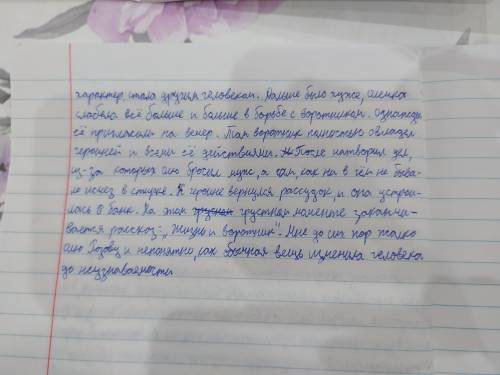 характер, стала другим человеком. Дальше было хуже, Оленка
слабела всё больше и больше в борьбе с воротником. Однажды
её пригласили на вечер. Там воротник полностью овладел
героиней и всеми её действиями. После натворил дел,
из-за которых её бросил муж, а сам, как ни в чём не быва-
ло исчез в стирке. К героине вернулся рассудок, и она устрои-
лась в банк. На этом грустном моменте заканчи-
вается рассказ: „Жизнь и воротник". Мне до сих пор жалко
Розову и непонятно, как обычная вещь изменила человека
до неузнаваемости